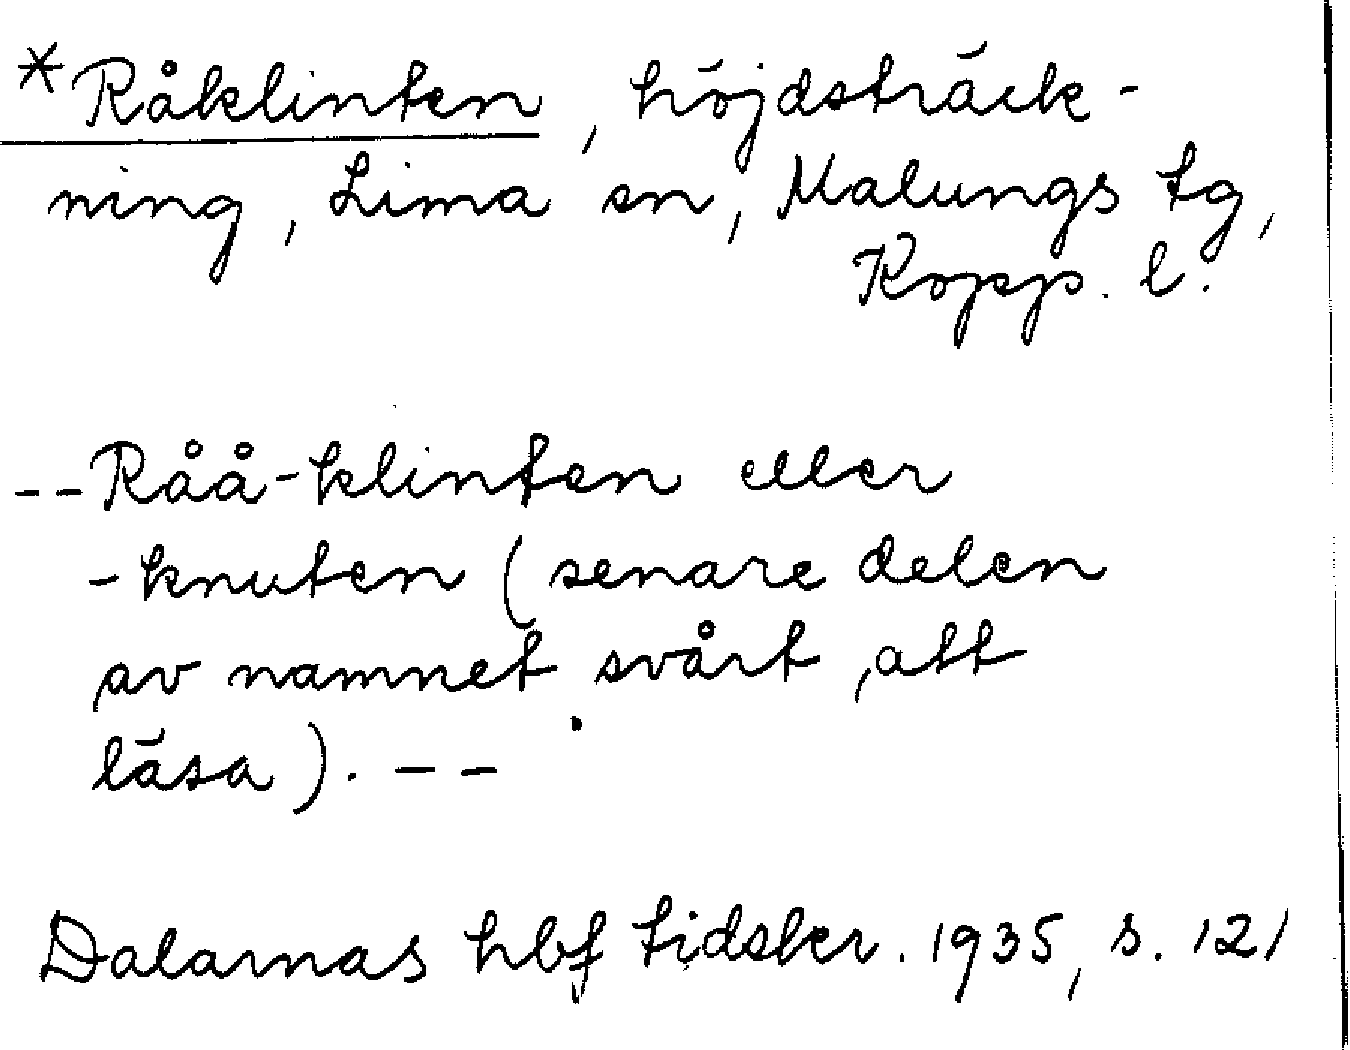 *Råklinten, höjdsträck-
ning, Lima sn, Malungs tg,
Kopp. l.
--Råå-klinten eller
-knuten (senare delen
av namnet svårt att
läsa). --
Dalarnas hbf tidskr. 1935, s. 121